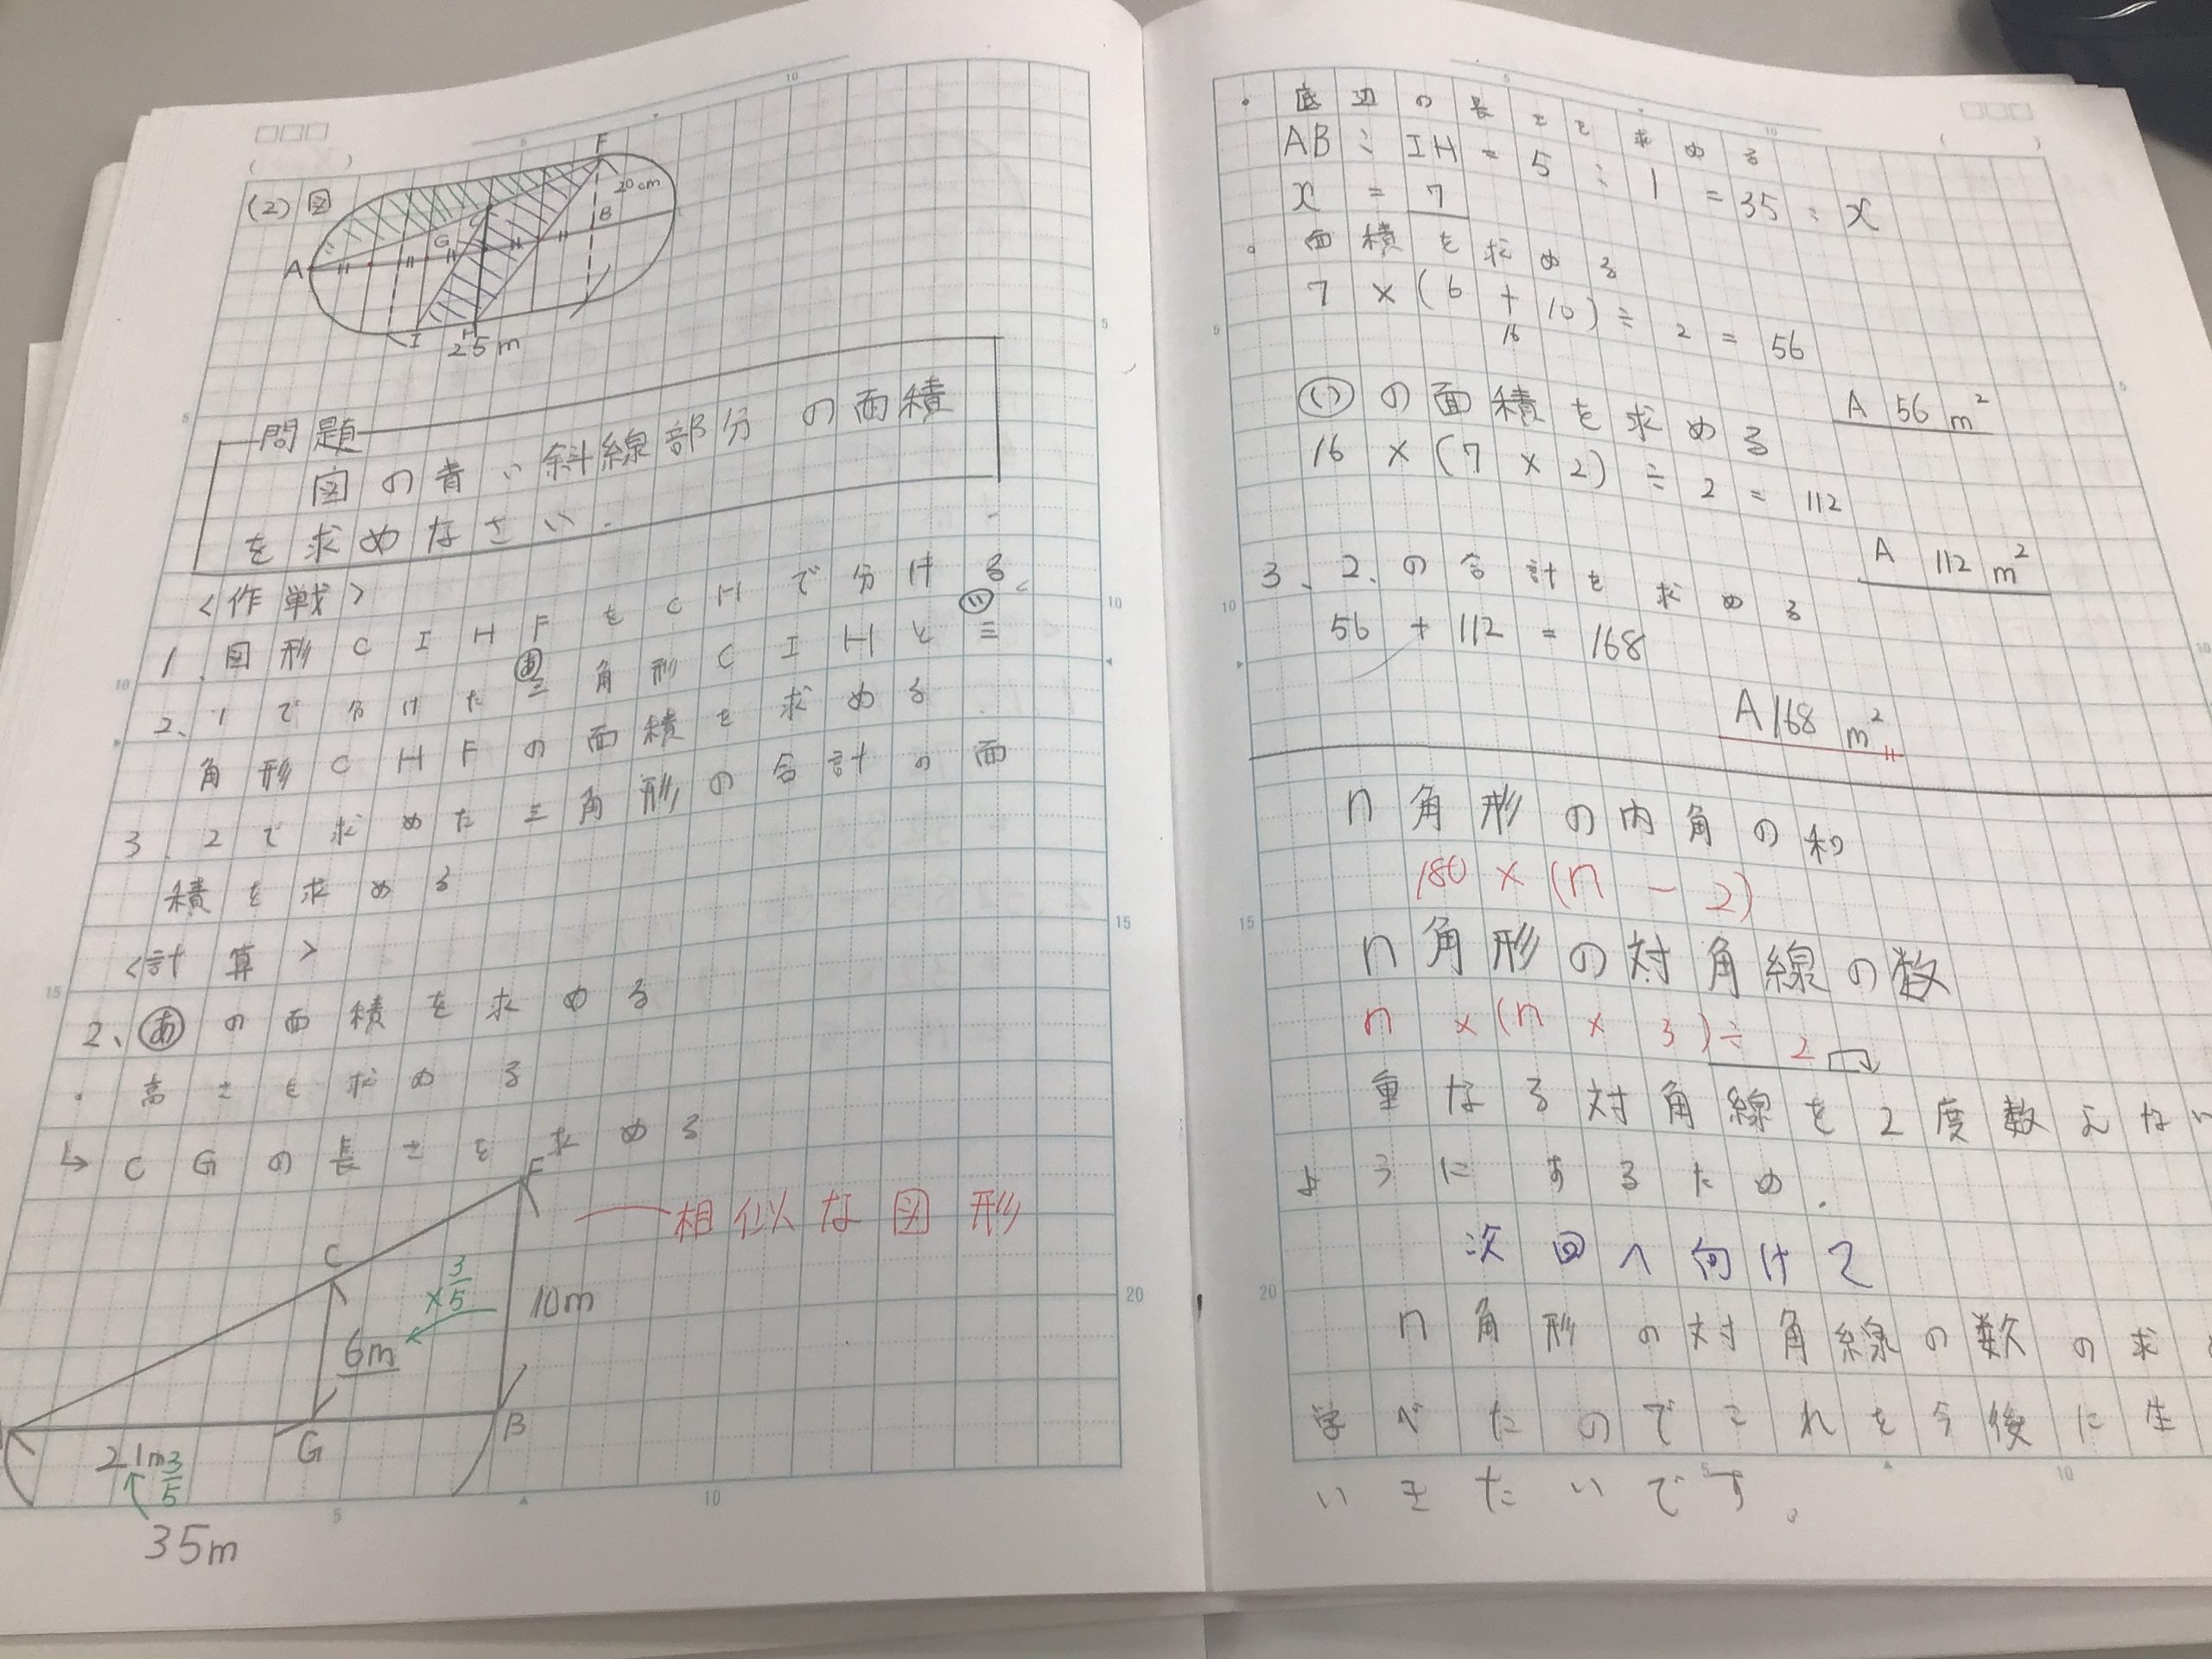 (2) 図
F
20cm
A
G
C
B
I
H
25m
問題
図の青い斜線部分の面積
を求めなさい.
<作戦>
1. 図形CIHFをCHで分ける。
2、1で分けたあ三角形CIHとい三
角形CHFの面積を求める.
3. 2で求めた三角形の合計の面
積を求める
<計算>
2、あの面積を求める
・高さを求める
↳ CGの長さを求める
F
相似な図形
C
×3/5
10m
6m
B
G
21m 3/5
35m
・底辺の長さを求める
AB:IH=5:1=35:x
x=7
・面積を求める
7×(6+10)÷2=56
16
A 56m²
いの面積を求める
16×(7×2)÷2=112
A 112m²
3、2、の合計を求める
56+112=168
A 168m²
n角形の内角の和
180×(n-2)
n角形の対角線の数
n×(n×3)÷2
重なる対角線を2度数えない
ようにするため.
次回へ向けて
n角形の対角線の数の求
学べたのでこれを今後に生
いきたいです。